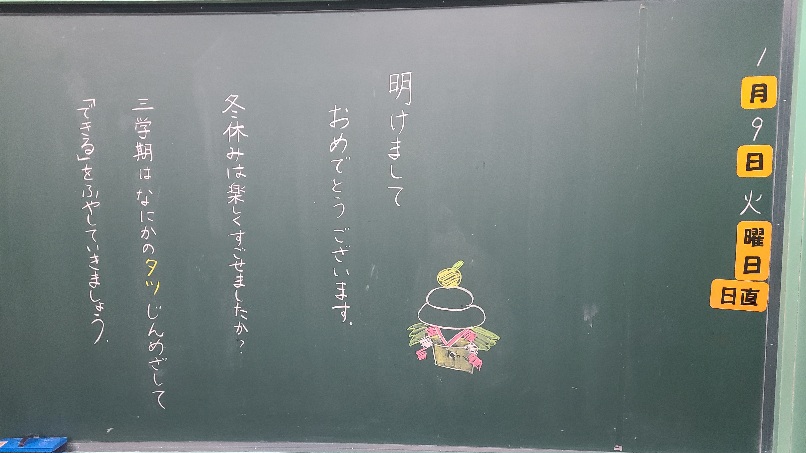 1月9日火曜日
日直
明けまして
おめでとうございます。
冬休みは楽しくすごせましたか？
三学期はなにかのタツじんめざして
「できる」をふやしていきましょう。